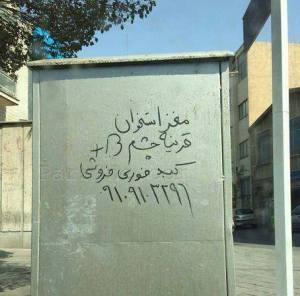 مغز استخوان
قرینه چشم B+
کبد فوری فروشی
۹۱۰۹۱۰۳۲۹۶